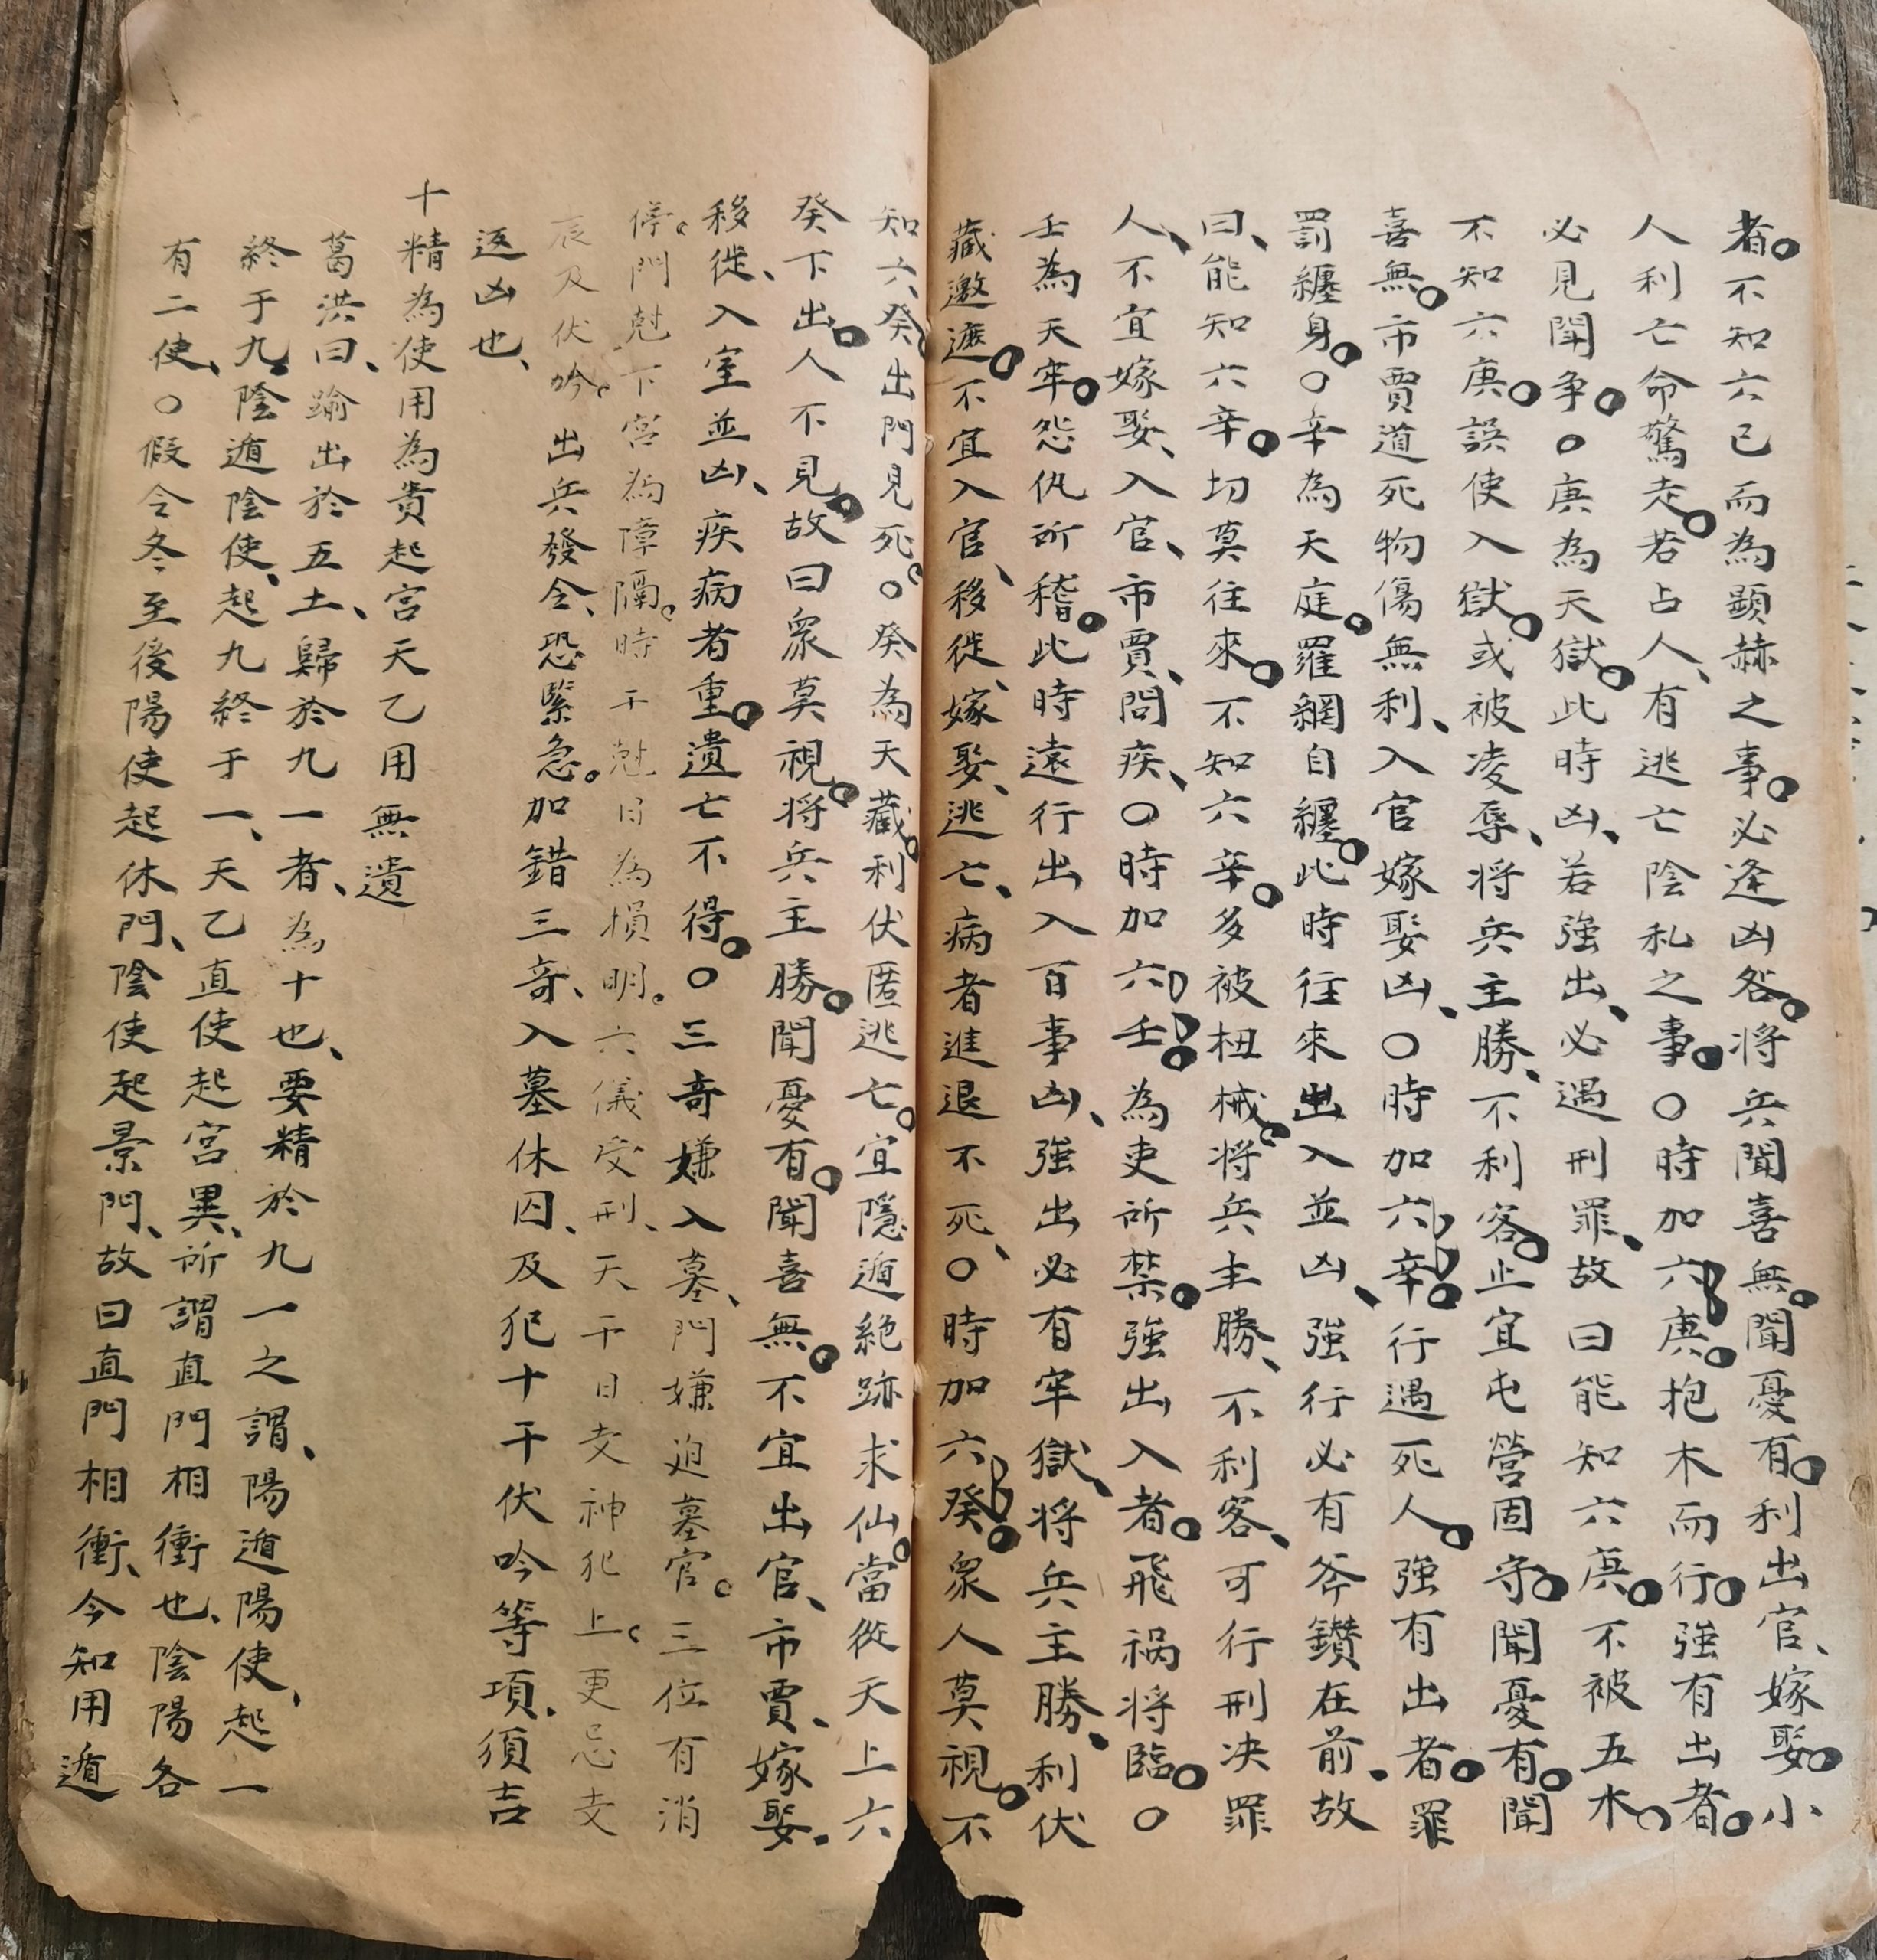 者。不知六己而為顕赫之事。必逢凶咎。将兵聞喜無。聞憂有。利出官、嫁娶。小
人利亡命驚走。若占人、有逃亡陰私之事。○時加六庚。抱木而行。強有出者。
必見鬪争。○庚為天獄。此時凶、若強出、必遇刑罪、故曰能知六庚。不被五木。
不知六庚。誤使入獄。或被凌辱、将兵主勝、不利客。止宜屯營固守。聞憂有。聞
喜無。市賈道死物傷無利、入官嫁娶凶、○時加六辛。行遇死人。強有出者。罪
罰纒身。○辛為天庭。羅網自纒。此時往來出入並凶、強行必有斧鑽在前、故
曰、能知六辛。切莫往來。不知六辛。多被杻械。将兵主勝、不利客、可行刑决罪
人、不宜嫁娶、入官、市賈、問疾、○時加六壬。為吏所禁。強出入者。飛祸将臨。○
壬為天牢。怨仇所稽。此時遠行出入百事凶、強出必有牢獄、将兵主勝、利伏
藏邀遮。不宜入官、移徙、嫁娶、逃亡、病者進退不死、○時加六癸。衆人莫視。不
知六癸。出門見死。○癸為天藏。利伏匿逃亡。宜隱遁絶跡求仙。當從天上六
癸下出。人不見。故曰衆莫視。将兵主勝。聞憂有。聞喜無。不宜出官、市賈、嫁娶。
移徙、入室並凶、疾病者重。遺亡不得。○三奇嫌入墓、門嫌迫墓官。三位有消
停。門尅下宮為障隔。時干尅日為損明。六儀受刑、天干日支神犯上。更忌支
辰及伏吟。出兵發令、恐緊急。加錯三奇、入墓休囚、及犯十干伏吟等項、須吉
返凶也、
十精為使用為貴起宮天乙用無遺
葛洪曰、踰出於五土、歸於九一者、為十也、要精於九一之謂、陽遁陽使、起一
終于九、陰遁陰使、起九終于一、天乙直使起宮異、所謂直門相衝也、陰陽各
有二使、○假令冬至後陽使起休門、陰使起景門、故曰直門相衝、今知用遁